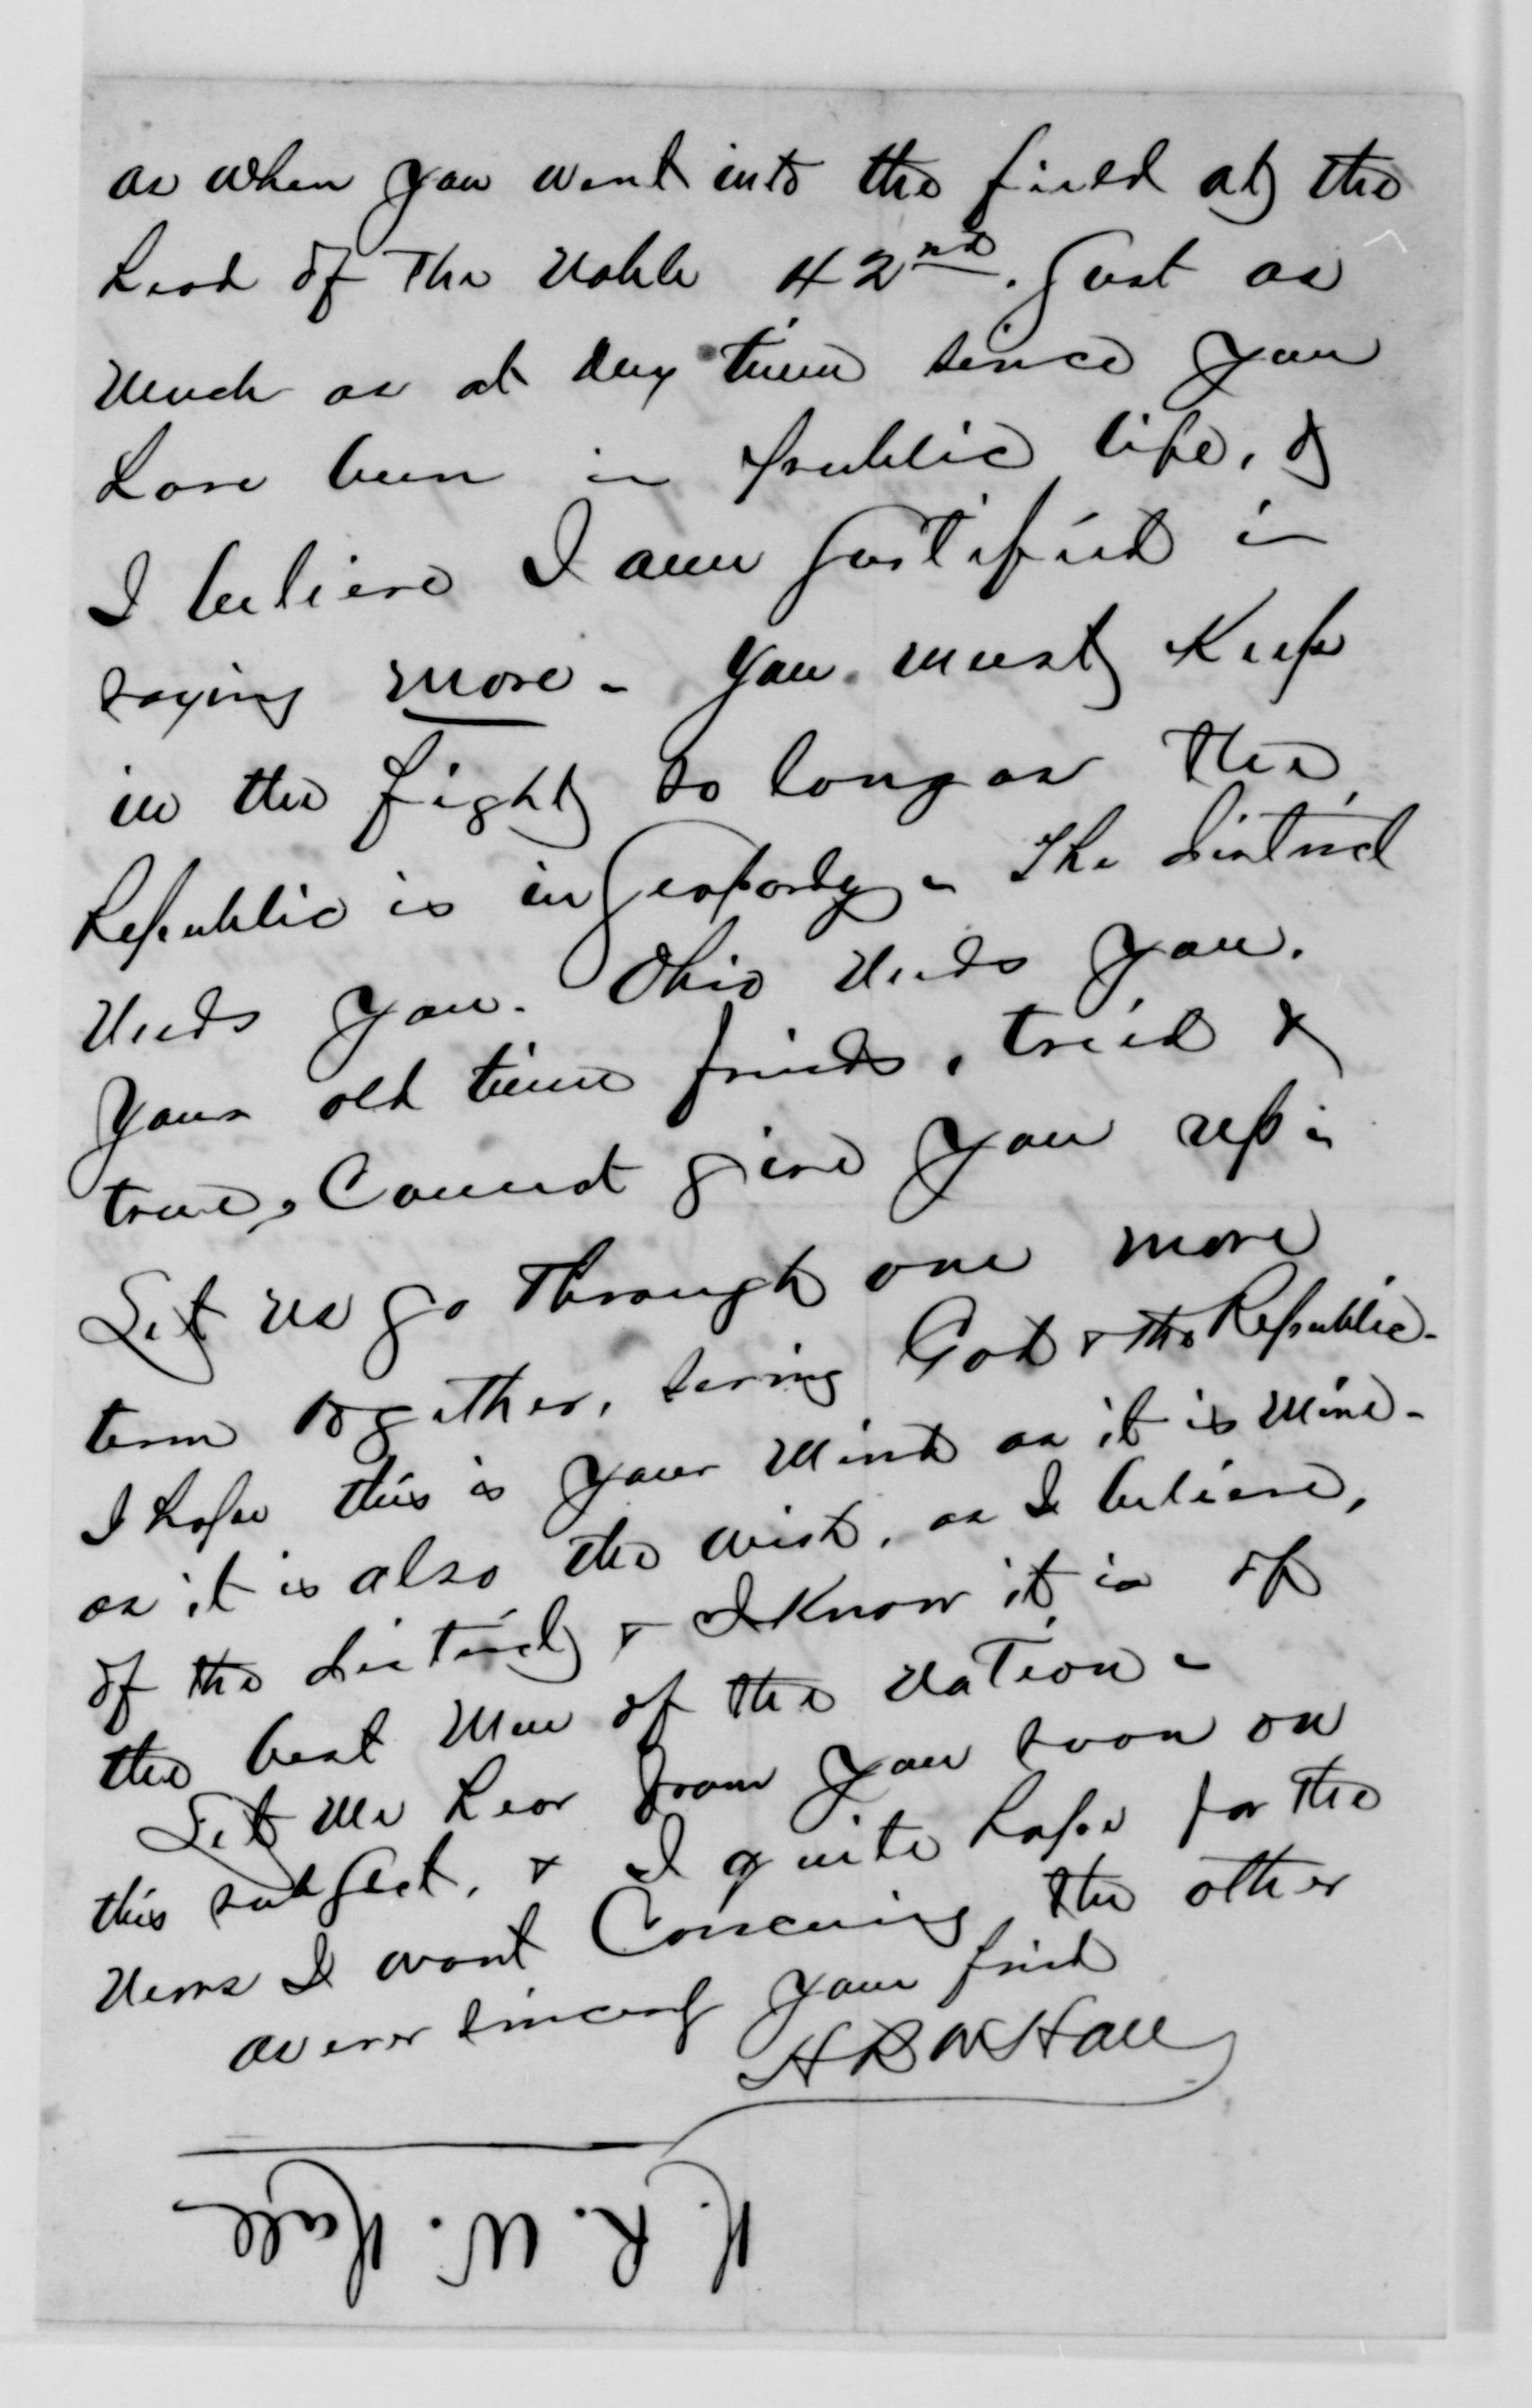 as when you went into the field at the
head of the noble 42nd. Just as
much as at any time since you
have been in public life, &
I believe I am justified in
saying more - you must keep
in the fight so long as the
Republic is in jeopardy - The district
needs you. Ohio needs you.
Your old time friends, tried &
true, cannot give you up in
Let us go through one more
term together, serving God & the Republic -
I hope this is your mind as it is mine -
as it is also the wish, as I believe,
of the district & I know it is of
the best men of the nation -
Let me hear from you soon on
this subject, & I quite hope for the
news I want concerning the other
as ever sincerely your friend
H R W Hall
H. R. W. Hall